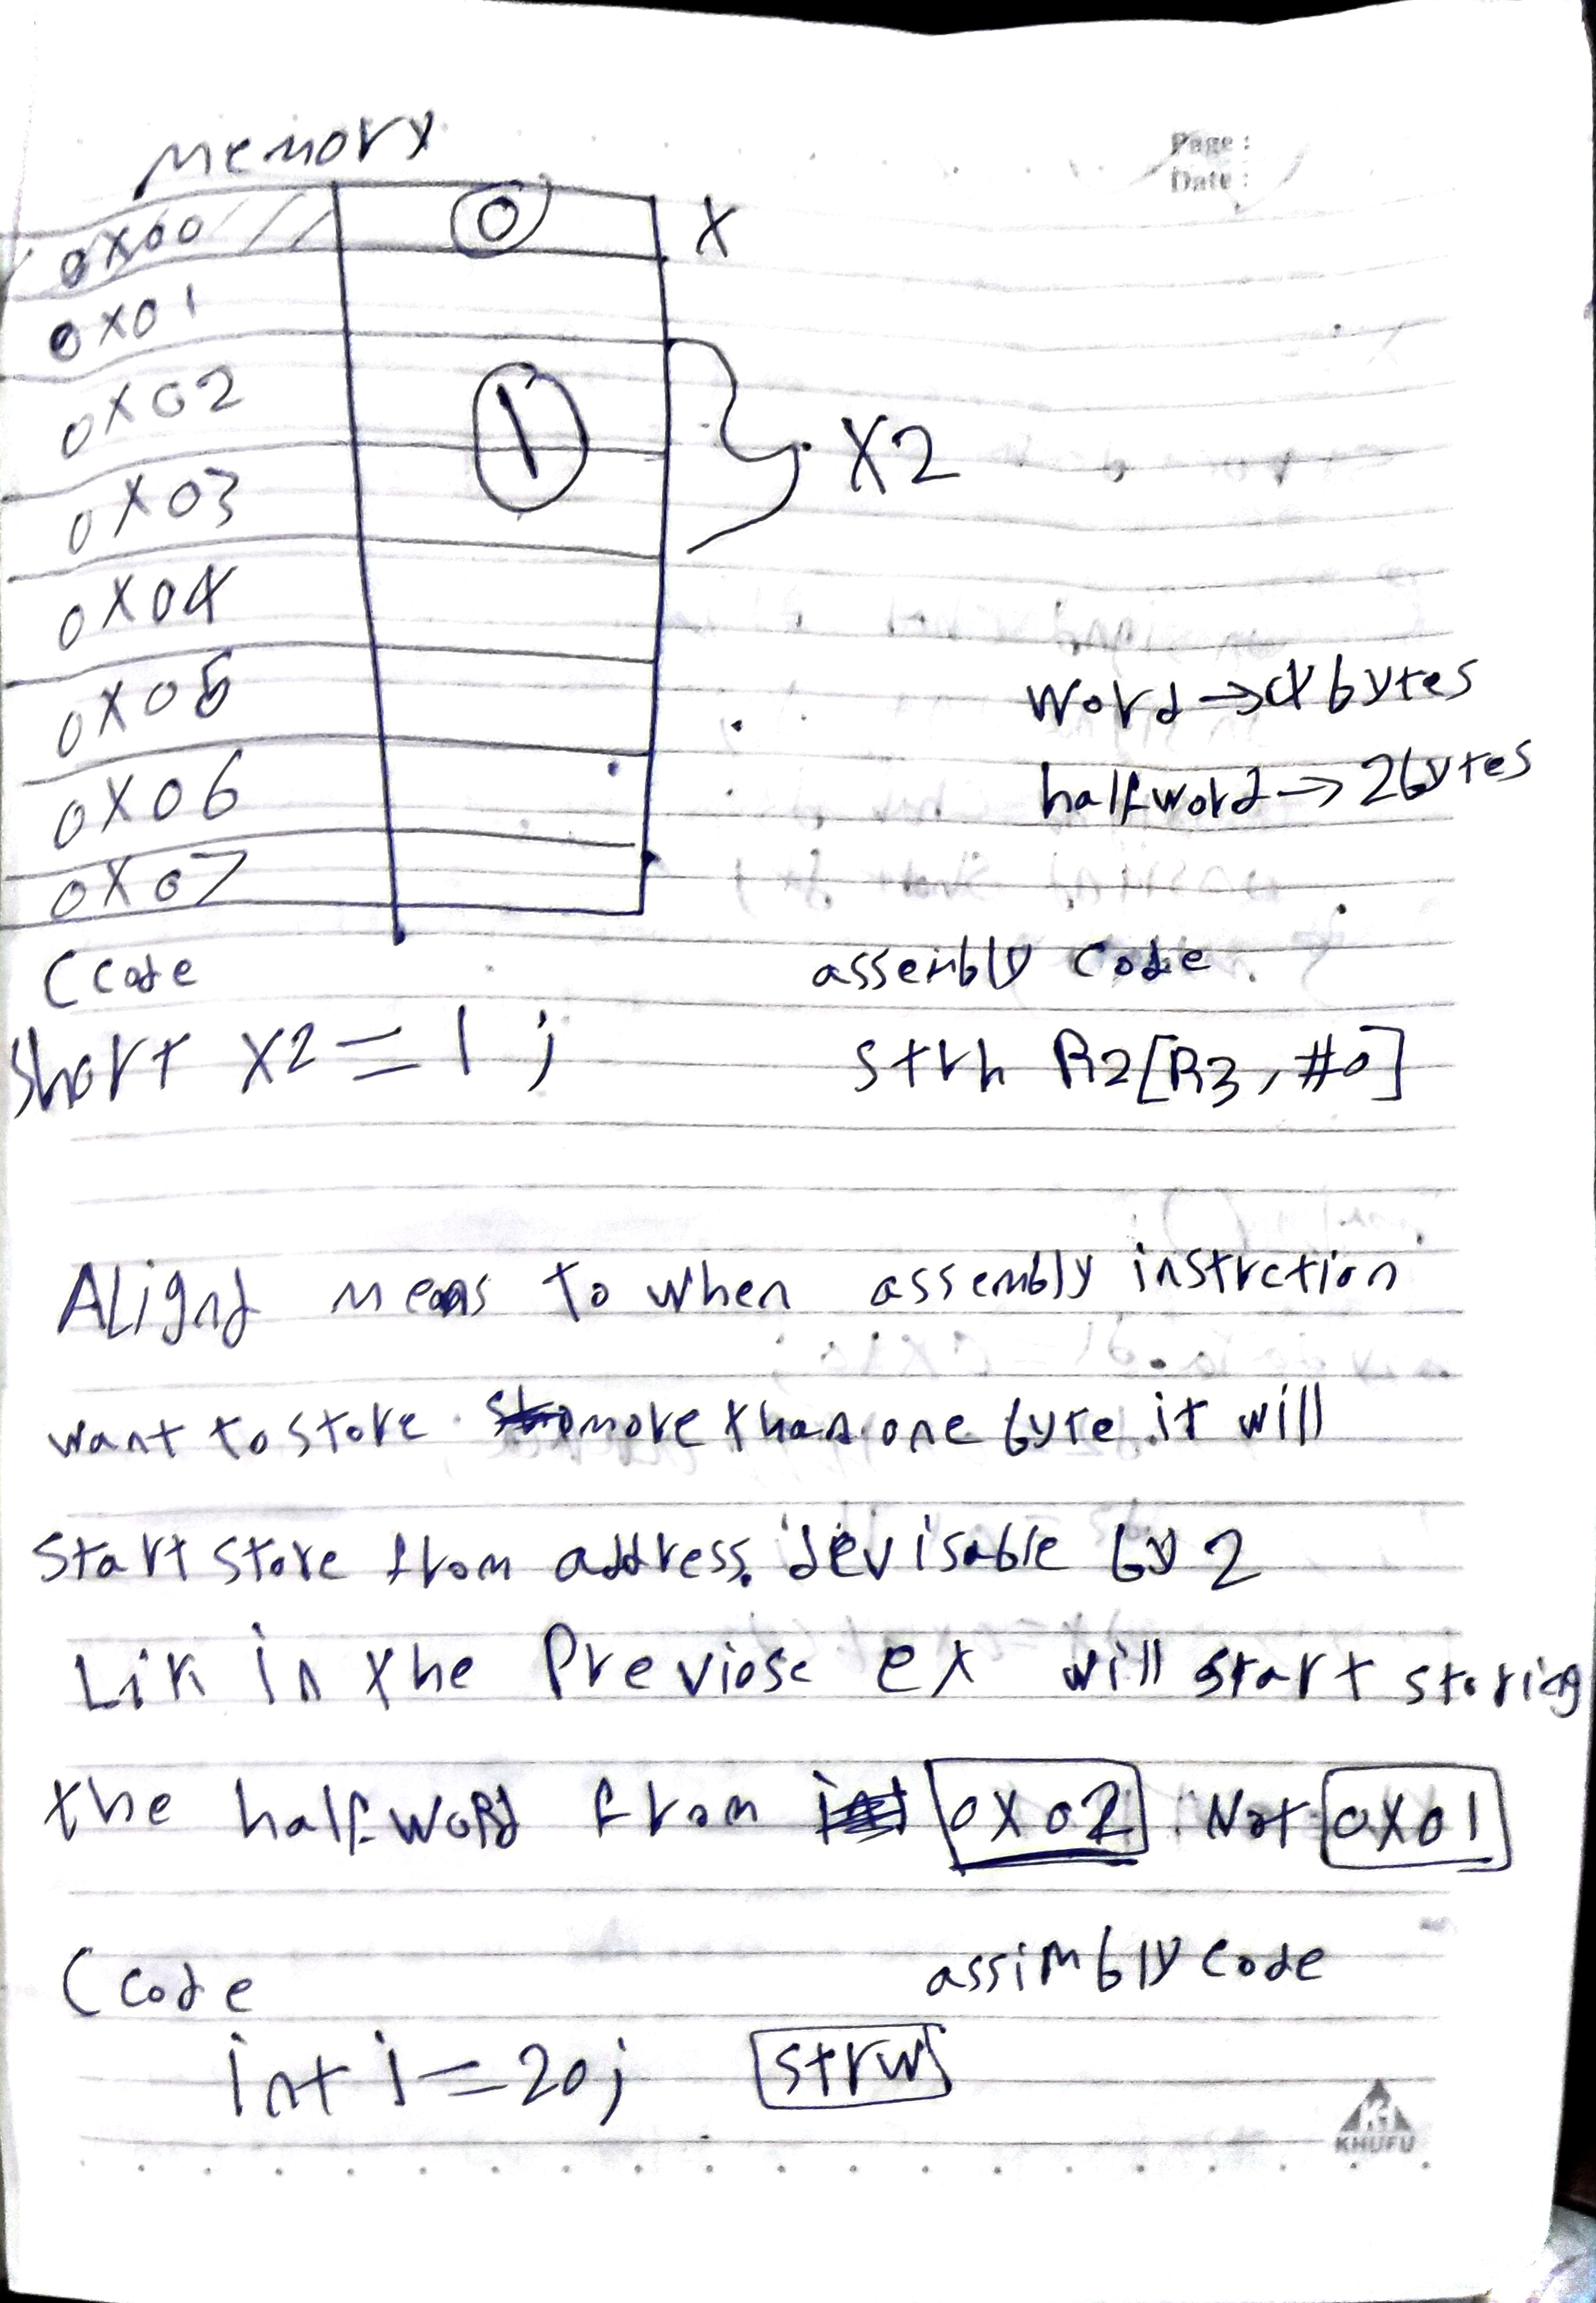 Memory
Page :
Date :
0x00 0 X
0x01
0x02 1 X2
0x03
0x04
0x05
word → 4 bytes
0x06
halfword → 2bytes
0x07
C code assembly code
short x2 = 1 ;
strh R2[R3, #0]
ALignd means to when assembly instrction
want to store more than one byte it will
start store from address devisable by 2
Lik in the Previose ex will start storing
the halfword from 0x02 Not 0x01
C code assimbly code
int i = 20; strw
KHUFU